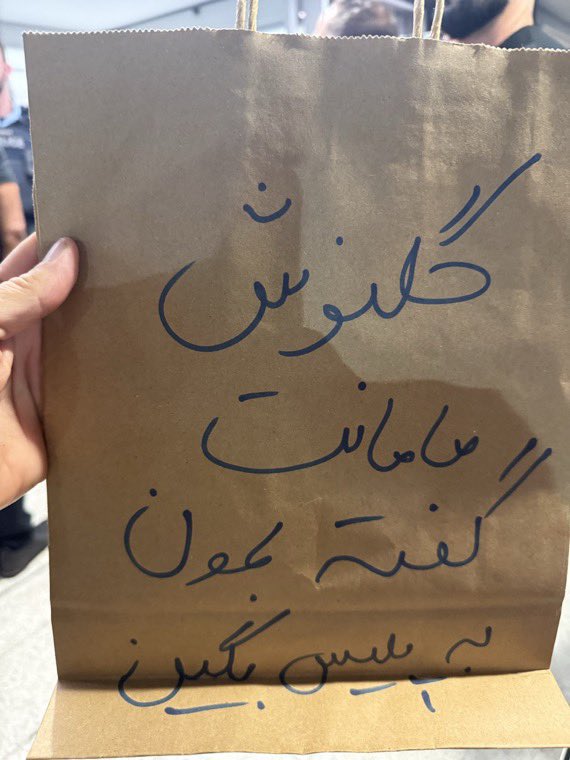 گلنوش
مامانت
گفته بمون
به پلیس بگین